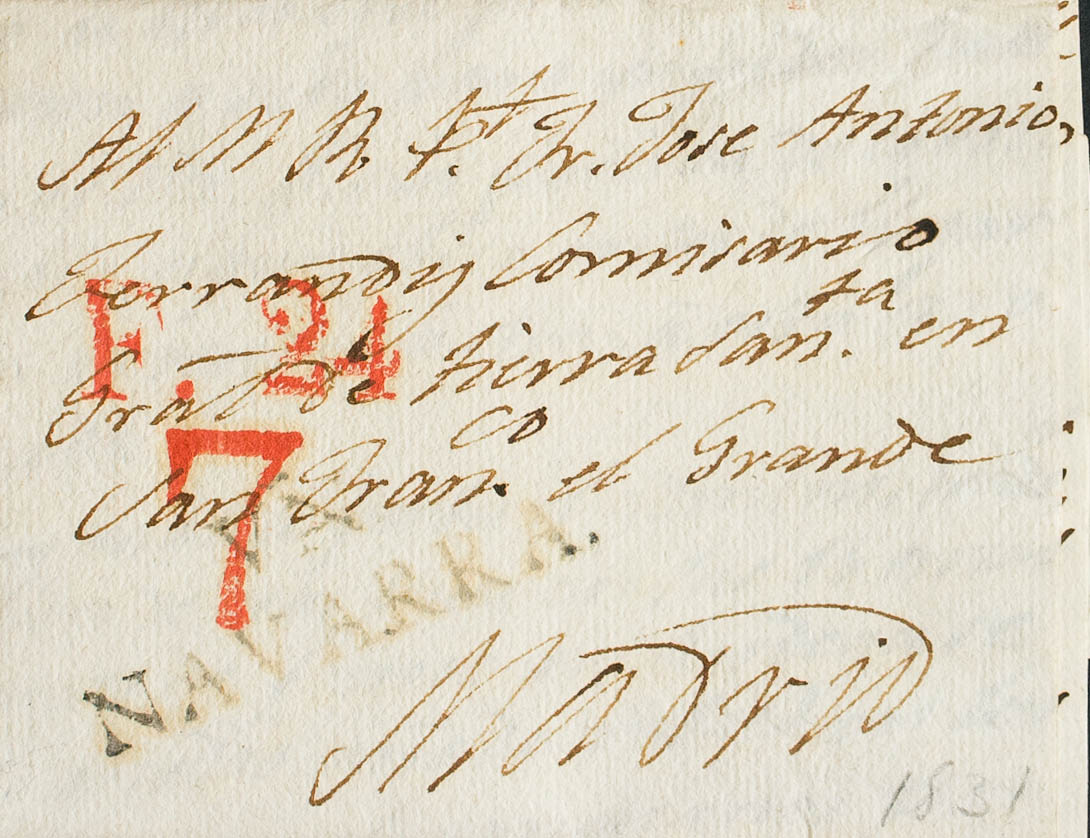 Al M R. P.e Fr. Jose Antonio,
Ferrandiz Comisario
F. 24
Gral de tierra San.ta en
7
San Fran.co el Grande
NAVARRA.
Madrid
1831